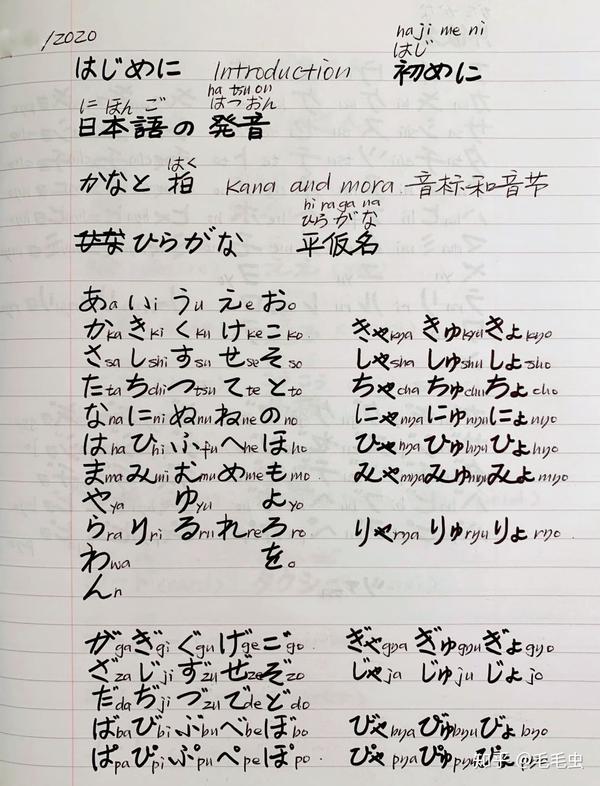 /2020
ha ji me ni
はじ
はじめに Introduction 初めに
ha tsu on
に ほん ご はつ おん
日本語の 発音
はく
かなと 拍 kana and mora. 音标和音节
hi ra ga na
ひら が な
ひな ひらがな 平仮名
あa いi うu えe おo
かka きki くku けke こko. きゃkya きゅkyu きょkyo
さsa しshi すsu せse そso しゃsha しゅshu しょsho
たta ちchi つtsu てte とto ちゃcha ちゅchu ちょcho
なna にni ぬnu ねne のno にゃnya にゅnyu にょnyo
はha ひhi ふfu へhe ほho ひゃhya ひゅhyu ひょhyo
まma みmi むmu めme もmo. みゃmya みゅmyu みょmyo
やya ゆyu よyo
らra りri るru れre ろro りゃrya りゅryu りょryo
わwa をo
んn
がga ぎgi ぐgu げge ごgo. ぎゃgya ぎゅgyu ぎょgyo
ざza じji ずzu ぜze ぞzo じゃja じゅju じょjo
だda ぢji づzu でde どdo
ばba びbi ぶbu べbe ぼbo びゃbya びゅbyu びょbyo
ぱpa ぴpi ぷpu ぺpe ぽpo. ぴゃpya ぴゅpyu ぴょ
知乎 @毛毛虫